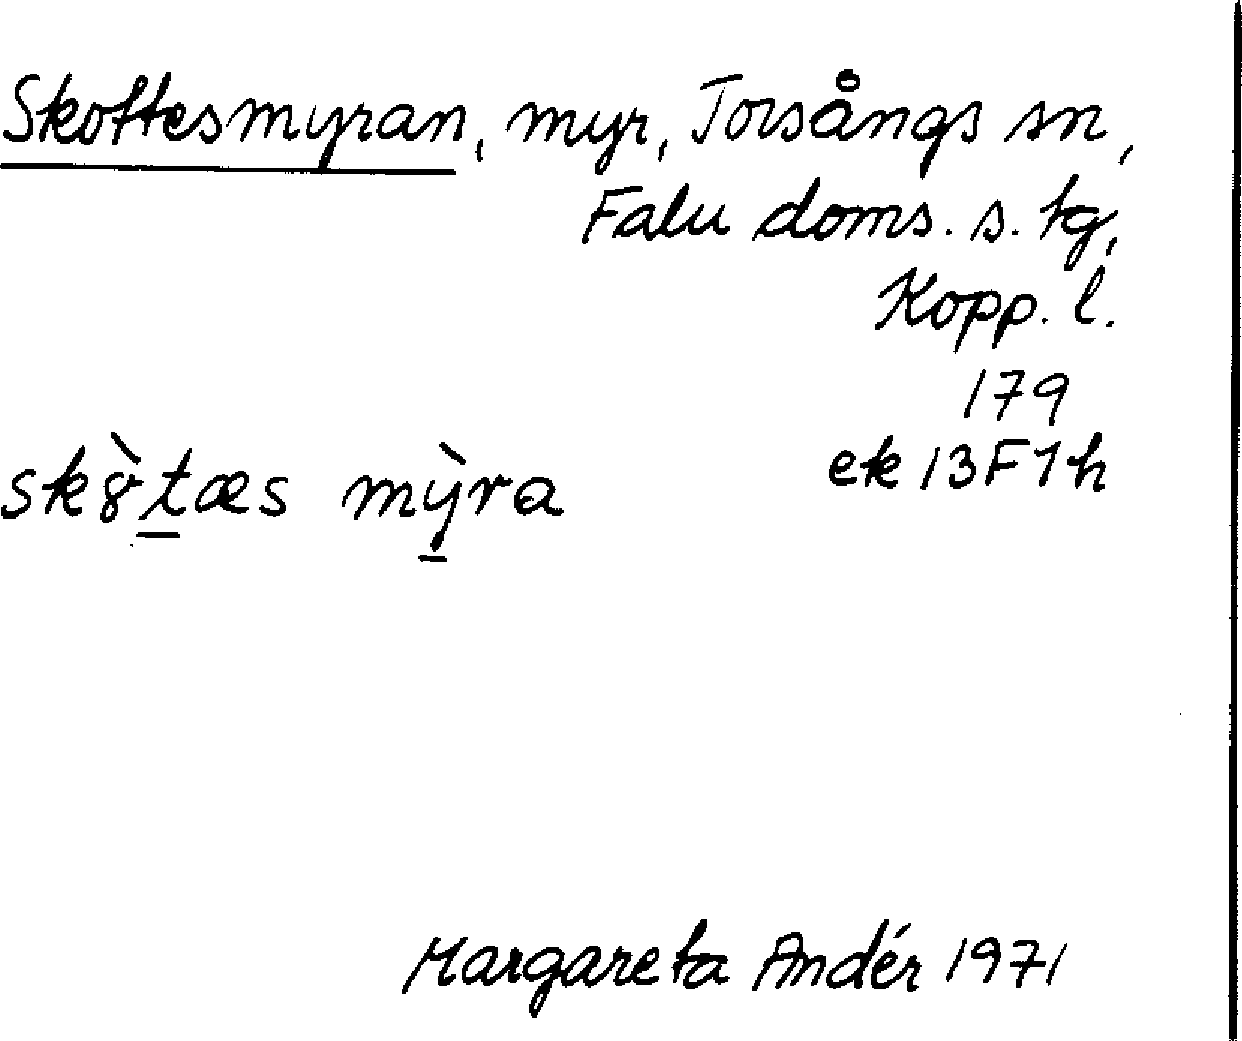 Skottesmyran, myr, Torsångs sn,
Falu doms. s. tg,
Kopp. l.
179
ek 13F1h
skȣ̀t̲æs mỳ̲ra
Margareta Andér 1971